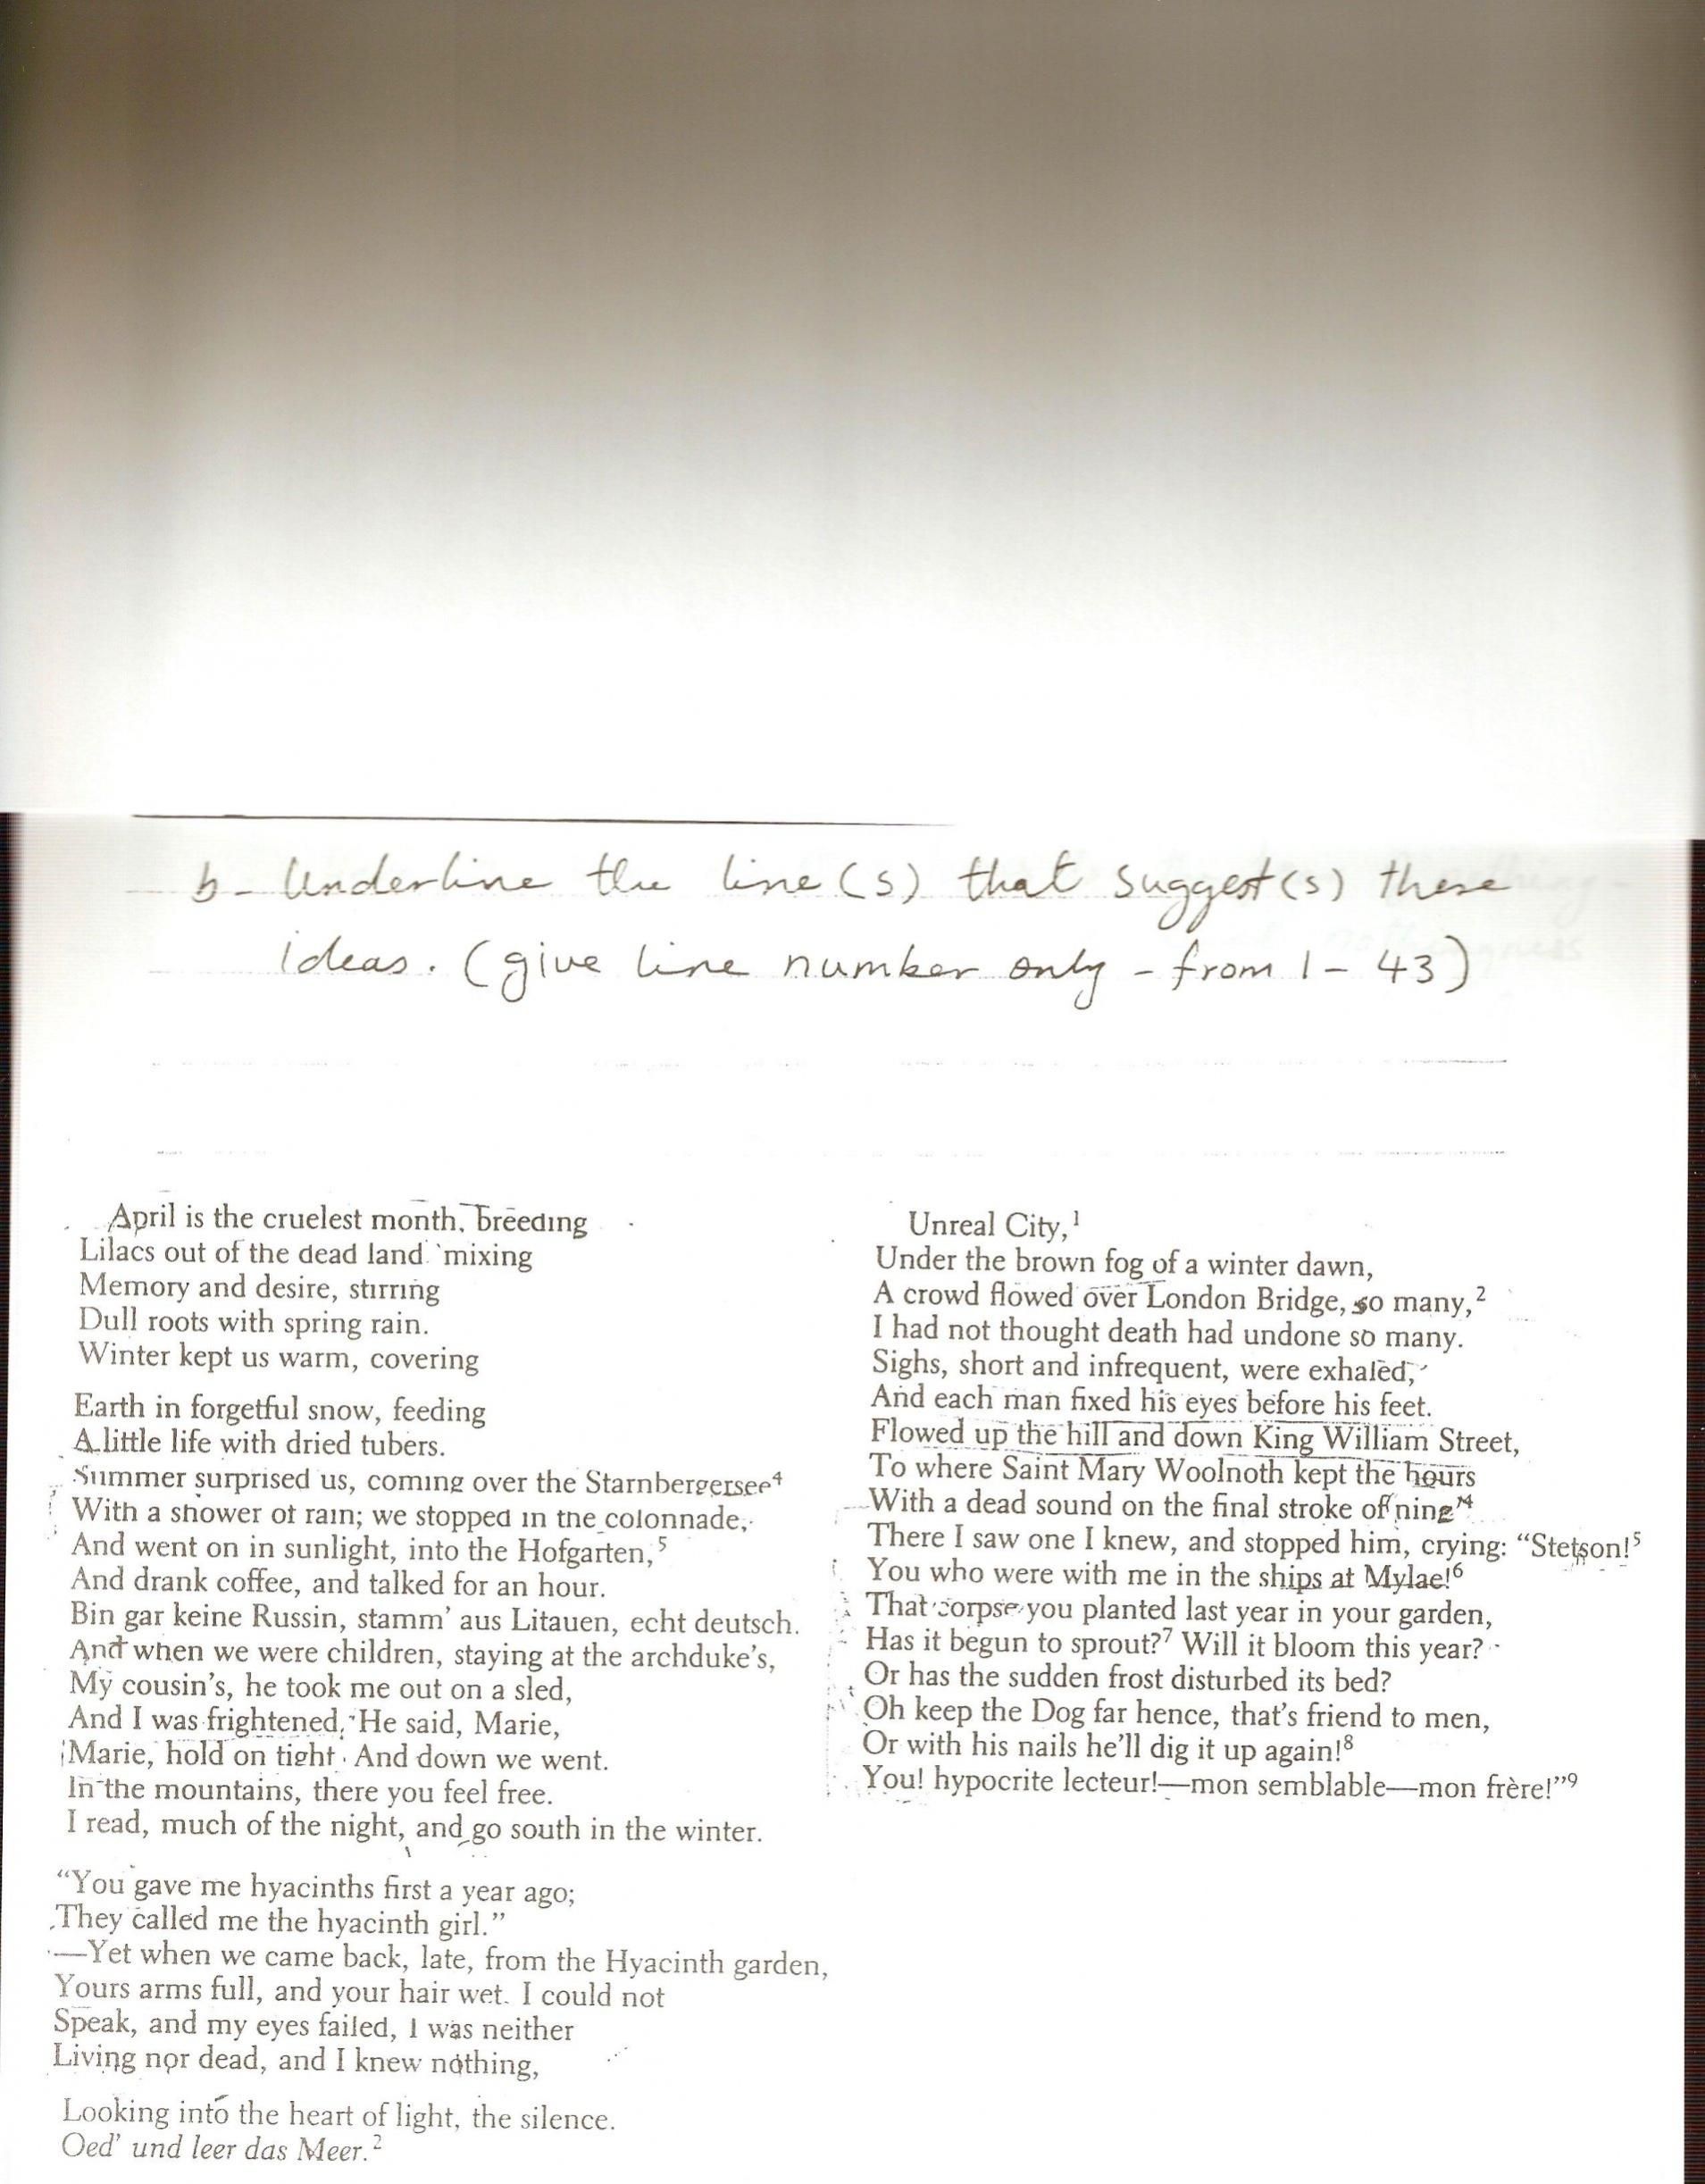 b- Underline the line(s) that suggest(s) these
ideas. (give line number only - from 1 - 43)
April is the cruelest month, breeding
Lilacs out of the dead land mixing
Memory and desire, stirring
Dull roots with spring rain.
Winter kept us warm, covering
Earth in forgetful snow, feeding
A little life with dried tubers.
Summer surprised us, coming over the Starnbergersee⁴
With a shower of rain; we stopped in the colonnade,
And went on in sunlight, into the Hofgarten,⁵
And drank coffee, and talked for an hour.
Bin gar keine Russin, stamm' aus Litauen, echt deutsch.
And when we were children, staying at the archduke's,
My cousin's, he took me out on a sled,
And I was frightened. He said, Marie,
Marie, hold on tight. And down we went.
In the mountains, there you feel free.
I read, much of the night, and go south in the winter.
“You gave me hyacinths first a year ago;
They called me the hyacinth girl.”
—Yet when we came back, late, from the Hyacinth garden,
Yours arms full, and your hair wet. I could not
Speak, and my eyes failed, I was neither
Living nor dead, and I knew nothing,
Looking into the heart of light, the silence.
Oed' und leer das Meer.²
Unreal City,¹
Under the brown fog of a winter dawn,
A crowd flowed over London Bridge, so many,²
I had not thought death had undone so many.
Sighs, short and infrequent, were exhaled,
And each man fixed his eyes before his feet.
Flowed up the hill and down King William Street,
To where Saint Mary Woolnoth kept the hours
With a dead sound on the final stroke of nine⁴
There I saw one I knew, and stopped him, crying: “Stetson!⁵
You who were with me in the ships at Mylae!⁶
That corpse you planted last year in your garden,
Has it begun to sprout?⁷ Will it bloom this year?
Or has the sudden frost disturbed its bed?
Oh keep the Dog far hence, that's friend to men,
Or with his nails he'll dig it up again!⁸
You! hypocrite lecteur!—mon semblable—mon frère!”⁹